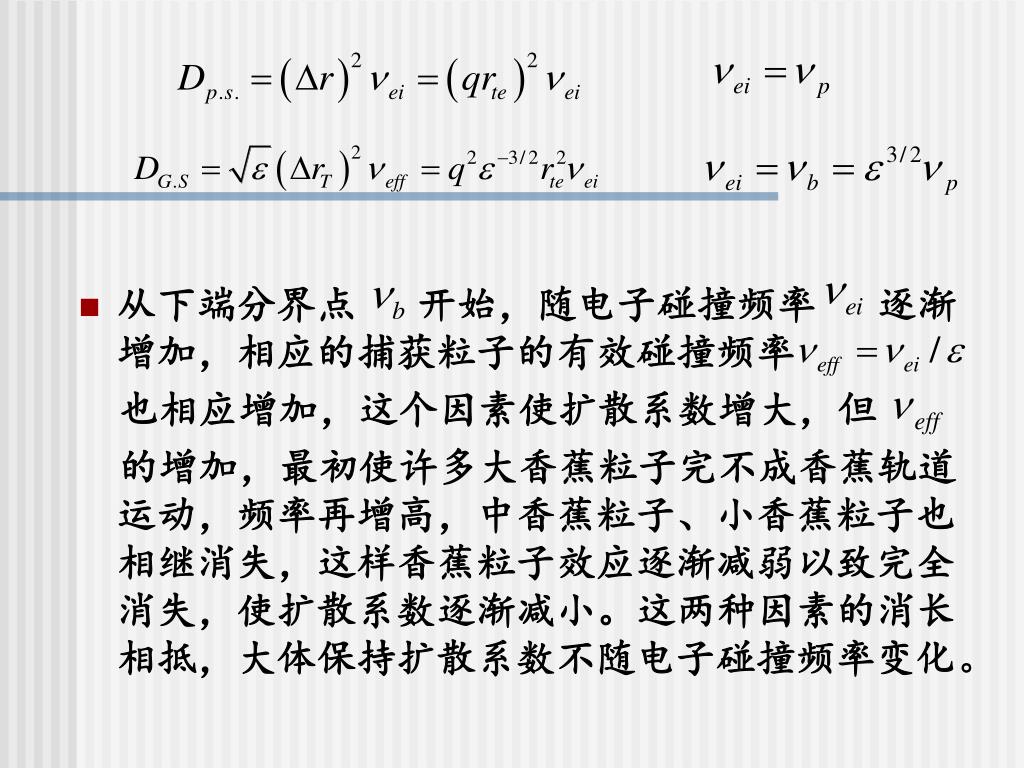 D_{p.s.} = (Δr)^2 ν_{ei} = (qr_{te})^2 ν_{ei}    ν_{ei} = ν_p
D_{G.S} = √ε (Δr_T)^2 ν_{eff} = q^2 ε^{-3/2} r_{te}^2 ν_{ei}    ν_{ei} = ν_b = ε^{3/2} ν_p
■ 从下端分界点 ν_b 开始，随电子碰撞频率 ν_{ei} 逐渐
增加，相应的捕获粒子的有效碰撞频率 ν_{eff} = ν_{ei} / ε
也相应增加，这个因素使扩散系数增大，但 ν_{eff}
的增加，最初使许多大香蕉粒子完不成香蕉轨道
运动，频率再增高，中香蕉粒子、小香蕉粒子也
相继消失，这样香蕉粒子效应逐渐减弱以致完全
消失，使扩散系数逐渐减小。这两种因素的消长
相抵，大体保持扩散系数不随电子碰撞频率变化。